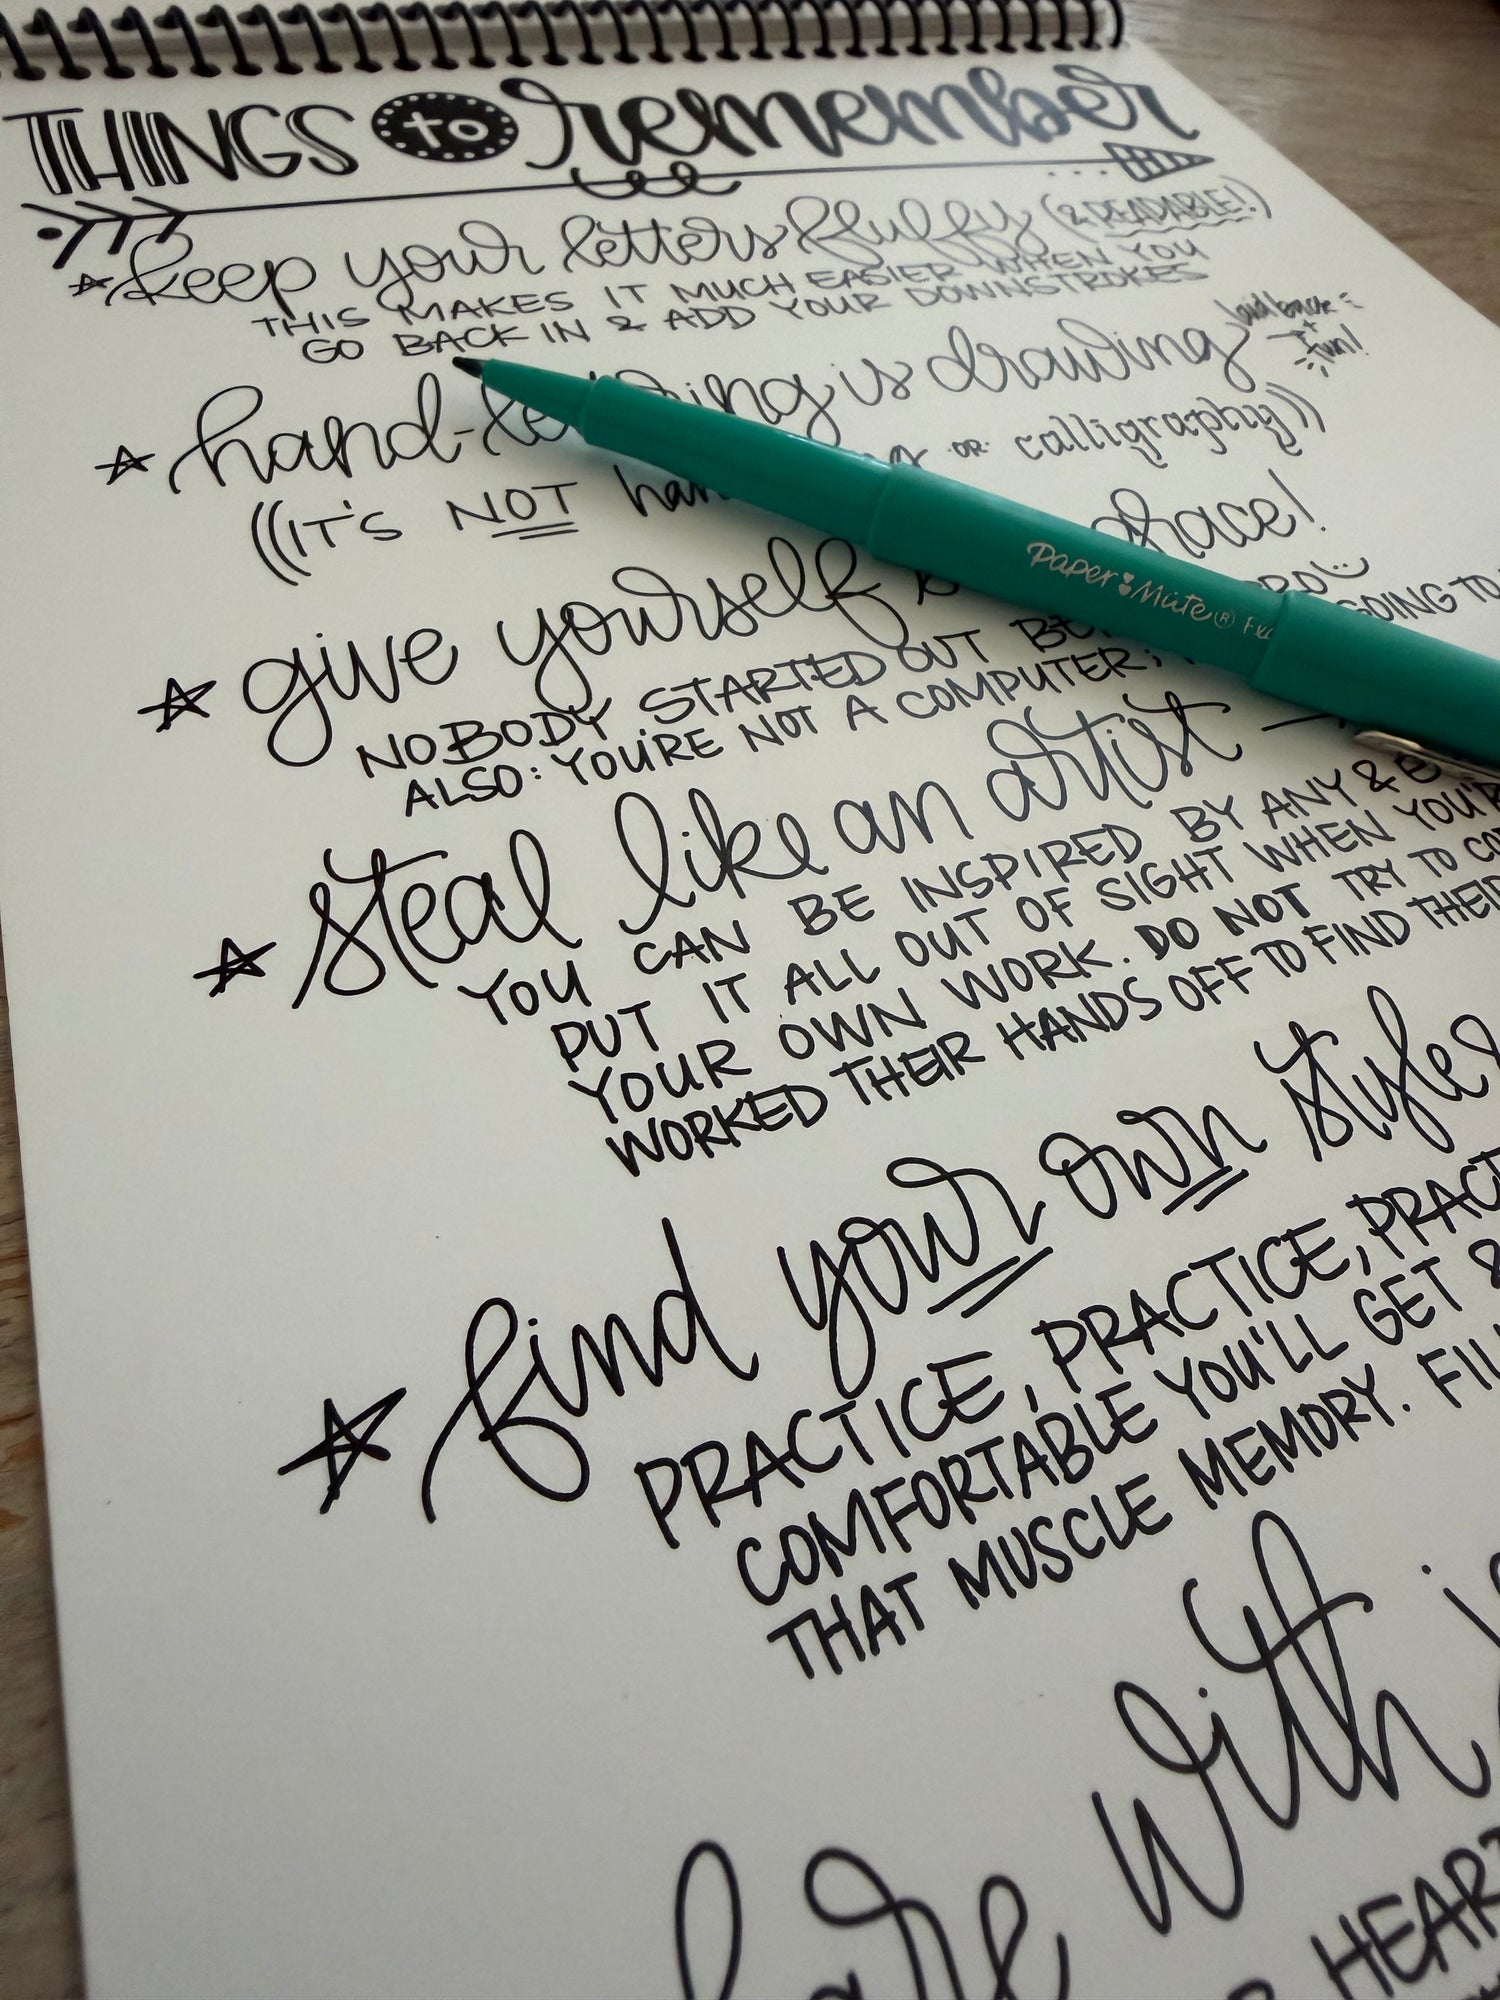 THINGS to remember
keep your letters fluffy (& READABLE!)
THIS MAKES IT MUCH EASIER WHEN YOU
GO BACK IN & ADD YOUR DOWNSTROKES
hand-le ing is drawing
laid back =
fun!
((IT'S NOT han or calligraphy))
give yourself grace!
NOBODY STARTED OUT PRO
ALSO: YOU'RE NOT A COMPUTER; GOING TO
steal like an artist
YOU CAN BE INSPIRED BY ANY & E
PUT IT ALL OUT OF SIGHT WHEN YOU'R
YOUR OWN WORK. DO NOT TRY TO CO
WORKED THEIR HANDS OFF TO FIND THEIR
find your own style
PRACTICE, PRACTICE, PRACT
COMFORTABLE YOU'LL GET &
THAT MUSCLE MEMORY. FIL
with
HEAR
Paper Mate®